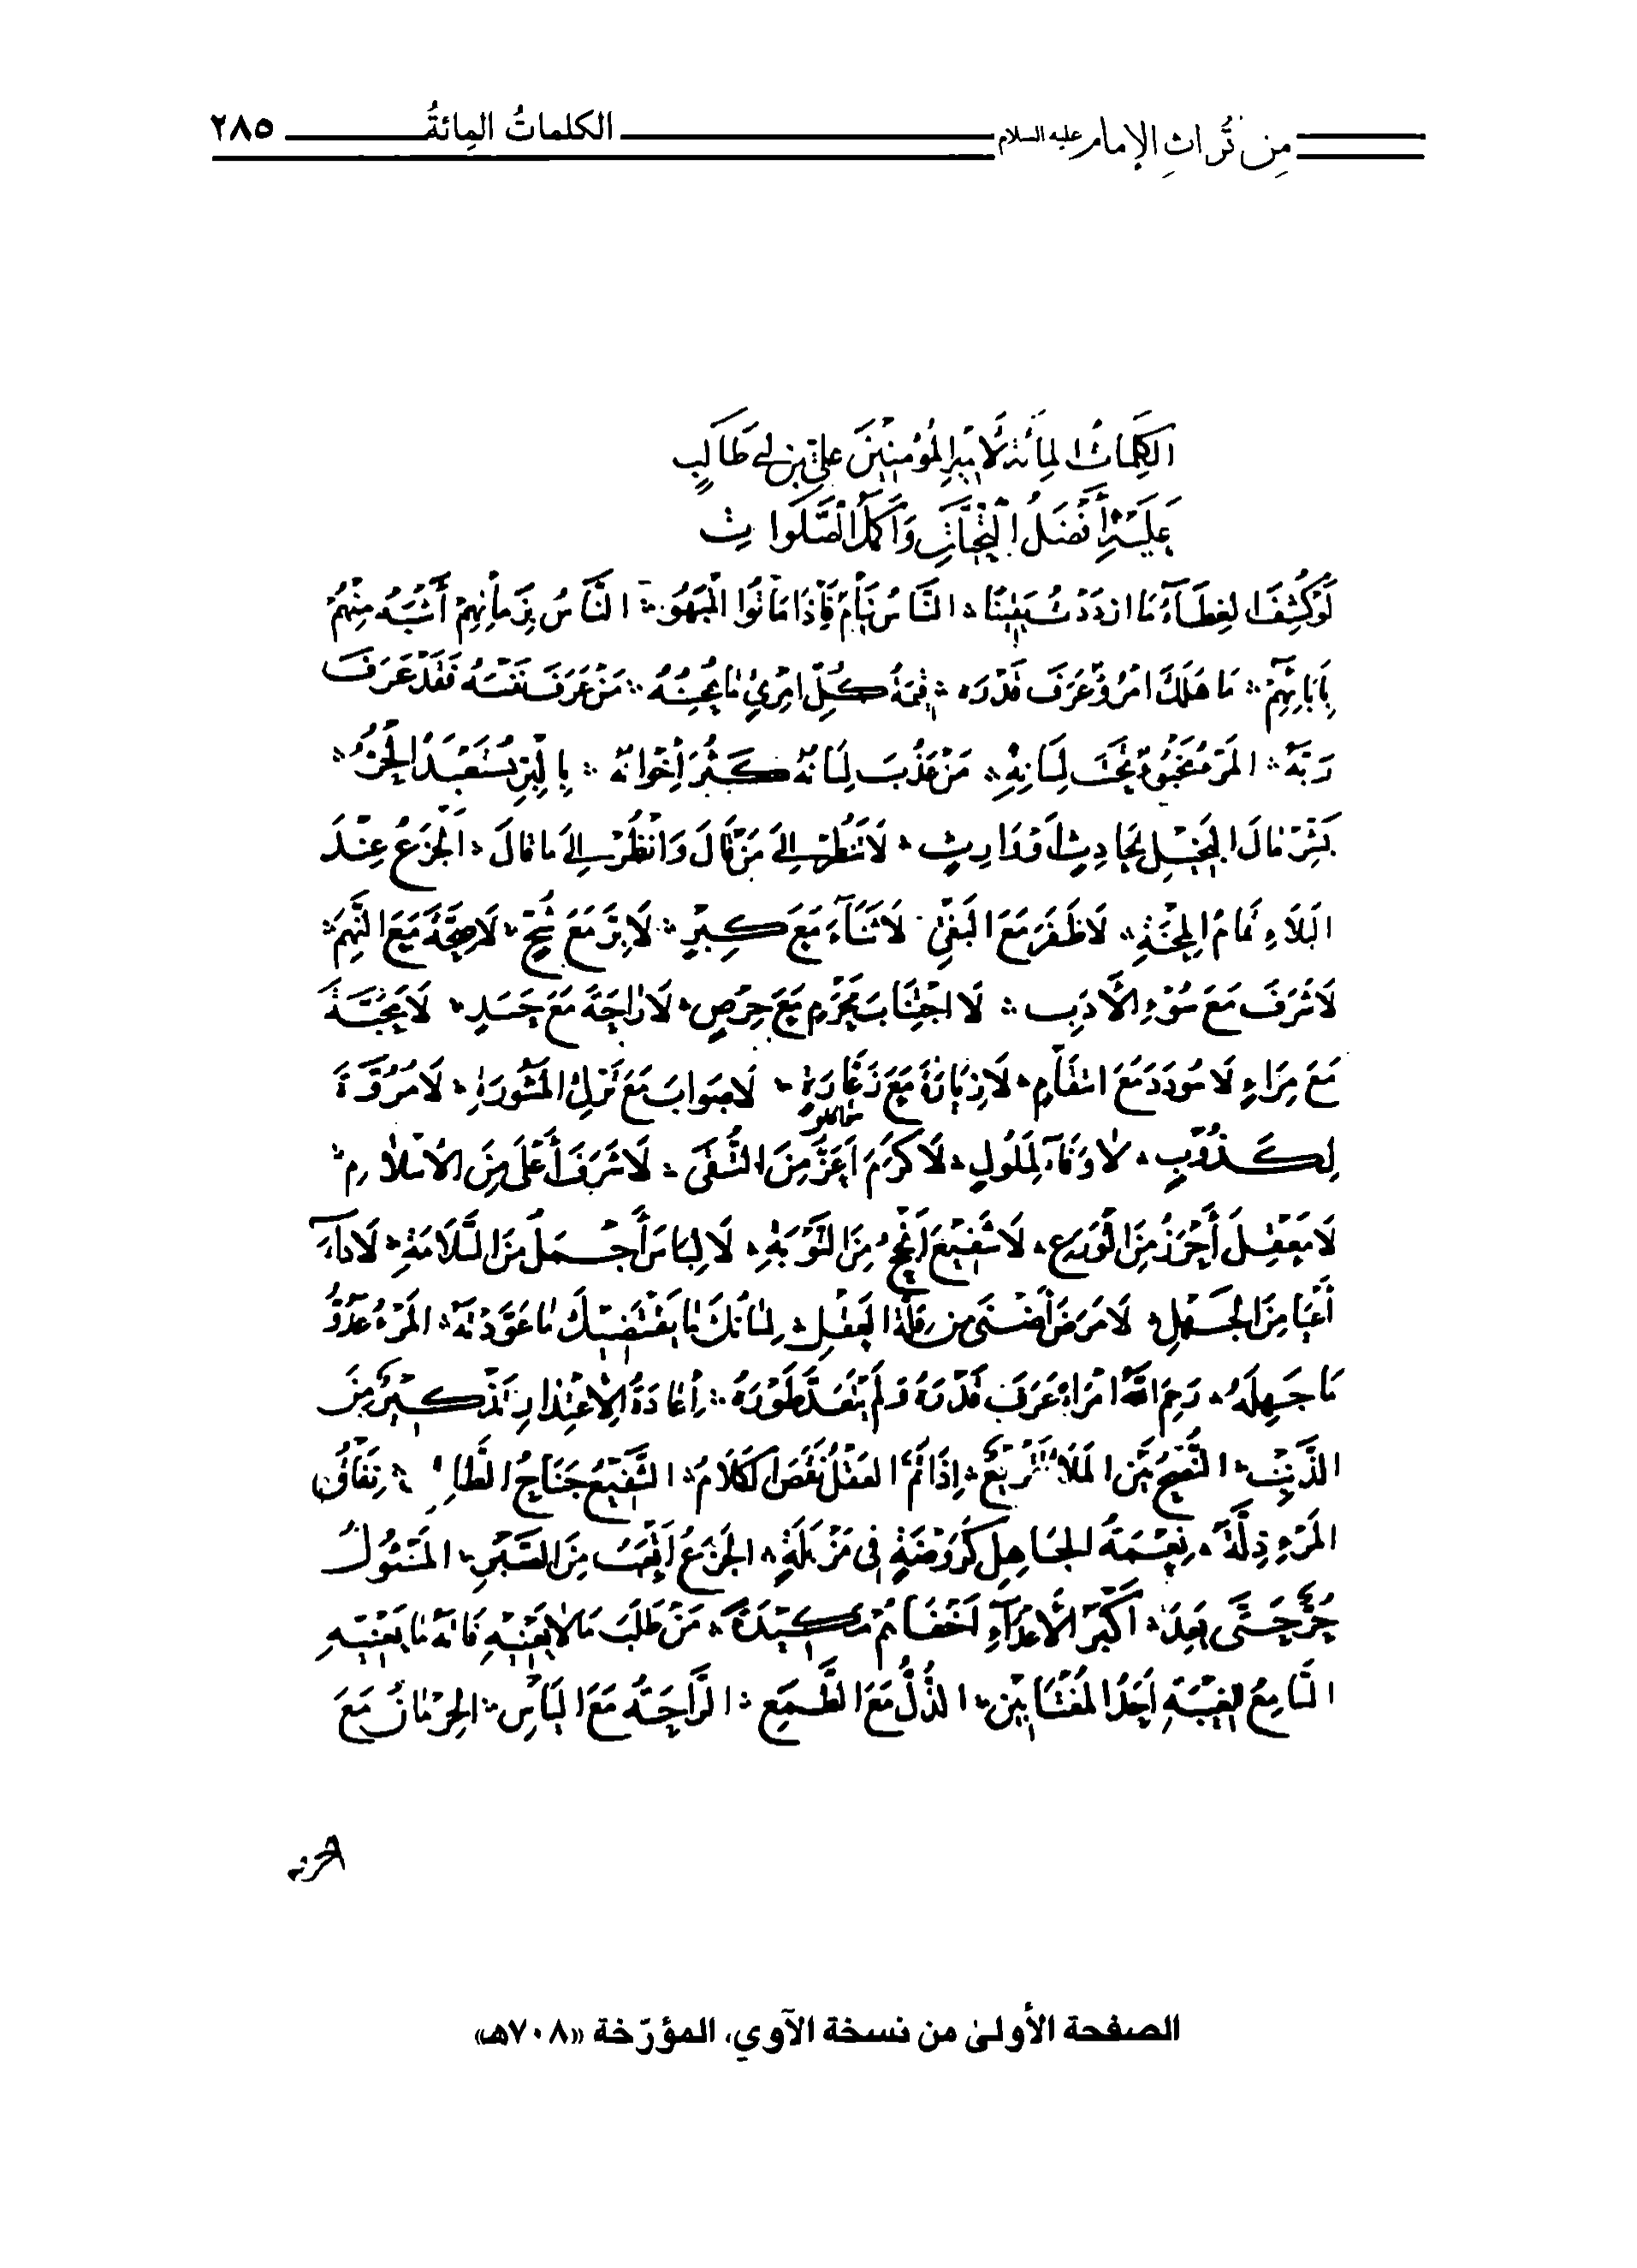 من تُراثِ الإمام عليه السلام الكلماتُ المِائةُ ٢٨٥
الكَلِمَاتُ المِائَةُ لِأَمِيرِ المُؤْمِنِينَ عَلِيِّ بْنِ أَبِي طَالِبٍ
عَلَيْهِ أَفْضَلُ التَّحِيَّاتِ وَأَكْمَلُ الصَّلَوَاتِ
لَوْ كُشِفَ الغِطَاءُ مَا ازْدَدْتُ يَقِينًا ؞ النَّاسُ نِيَامٌ فَإِذَا مَاتُوا انْتَبَهُوا ؞ النَّاسُ بِزَمَانِهِمْ أَشْبَهُ مِنْهُمْ
بِآبَائِهِمْ ؞ مَا هَلَكَ امْرُؤٌ عَرَفَ قَدْرَهُ ؞ قِيمَةُ كُلِّ امْرِئٍ مَا يُحْسِنُهُ ؞ مَنْ عَرَفَ نَفْسَهُ فَقَدْ عَرَفَ
رَبَّهُ ؞ المَرْءُ مَخْبُوءٌ تَحْتَ لِسَانِهِ ؞ مَنْ عَذُبَ لِسَانُهُ كَثُرَ إِخْوَانُهُ ؞ بِالبِرِّ يُسْتَعْبَدُ الحُرُّ ؞
بَشِّرْ مَالَ البَخِيلِ بِحَادِثٍ أَوْ وَارِثٍ ؞ لَا تَنْظُرْ إِلَى مَنْ قَالَ وَانْظُرْ إِلَى مَا قَالَ ؞ الجَزَعُ عِنْدَ
البَلَاءِ تَمَامُ المِحْنَةِ ؞ لَا ظَفَرَ مَعَ البَغْيِ ؞ لَا ثَنَاءَ مَعَ كِبْرٍ ؞ لَا بِرَّ مَعَ شُحٍّ ؞ لَا صِحَّةَ مَعَ النَّهَمِ ؞
لَا شَرَفَ مَعَ سُوءِ الأَدَبِ ؞ لَا اجْتِنَابَ مُحَرَّمٍ مَعَ حِرْصٍ ؞ لَا رَاحَةَ مَعَ حَسَدٍ ؞ لَا مَحَبَّةَ
مَعَ مِرَاءٍ لَا سُودَدَ مَعَ انْتِقَامٍ ؞ لَا زِيَارَةَ مَعَ زَعَارَةٍ ؞ لَا صَوَابَ مَعَ تَرْكِ المَشُورَةِ ؞ لَا مُرُوَّةَ
لِكَذُوبٍ ؞ لَا وَفَاءَ لِمَلُولٍ ؞ لَا كَرَمَ أَعَزُّ مِنَ التُّقَى ؞ لَا شَرَفَ أَعْلَى مِنَ الإِسْلَامِ ؞
لَا مَعْقِلَ أَحْرَزُ مِنَ الوَرَعِ ؞ لَا شَفِيعَ أَنْجَحُ مِنَ التَّوْبَةِ ؞ لَا لِبَاسَ أَجْمَلُ مِنَ السَّلَامَةِ ؞ لَا دَاءَ
أَعْيَا مِنَ الجَهْلِ ؞ لَا مَرَضَ أَضْنَى مِنْ قِلَّةِ العَقْلِ ؞ لِسَانُكَ مَا يَقْتَضِيكَ مَا عَوَّدْتَهُ ؞ المَرْءُ عَدُوُّ
مَا جَهِلَهُ ؞ رَحِمَ اللهُ امْرَأً عَرَفَ قَدْرَهُ وَلَمْ يَتَعَدَّ طَوْرَهُ ؞ إِعَادَةُ الاِعْتِذَارِ تَذْكِيرٌ مِنَ
الذَّنْبِ ؞ النُّصْحُ بَيْنَ المَلَأِ تَقْرِيعٌ ؞ إِذَا تَمَّ العَقْلُ نَقَصَ الكَلَامُ ؞ الشَّفِيعُ جَنَاحُ الطَّالِبِ ؞ نِفَاقُ
المَرْءِ ذِلَّةٌ ؞ نِعْمَةُ الجَاهِلِ كَرَوْضَةٍ فِي مَزْبَلَةٍ ؞ الجَزَعُ أَتْعَبُ مِنَ الصَّبْرِ ؞ المَسْئُولُ
حُرٌّ حَتَّى يَعِدَ ؞ أَكْبَرُ الأَعْدَاءِ أَخْفَاهُمْ مَكِيدَةً ؞ مَنْ طَلَبَ مَا لَا يَعْنِيهِ فَاتَهُ مَا يَعْنِيهِ
السَّامِعُ لِلْغِيبَةِ أَحَدُ المُغْتَابِينَ ؞ الذُّلُّ مَعَ الطَّمَعِ ؞ الرَّاحَةُ مَعَ اليَأْسِ ؞ الحِرْمَانُ مَعَ
الصفحة الأولىٰ من نسخة الآوي، المؤرّخة «٧٠٨هـ»